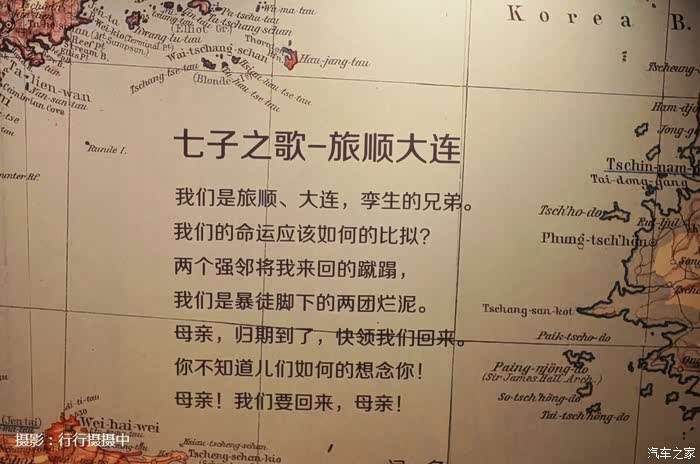 Korea B.
(Elliot Gr.)
Wai-tscha­ng-schan
Hau-jang-tau
(Blonde-I.)
Ta-lien-wan
Runde I.
Tschin-nam-p
Tai-dong-gang
Tsch'ho-do
Phung-tsch'hön
Tschang-san-kot
Paik-tscho-do
Paing-njöng-do
(Sir James Hall Arch.)
So-tsch'höng-do
Tai-tsch'höng-do
七子之歌-旅顺大连
我们是旅顺、大连，孪生的兄弟。
我们的命运应该如何的比拟？
两个强邻将我来回的蹴蹋，
我们是暴徒脚下的两团烂泥。
母亲，归期到了，快领我们回来。
你不知道儿们如何的想念你！
母亲！我们要回来，母亲！
Wei-hai-wei
摄影：行行摄摄中
汽车之家